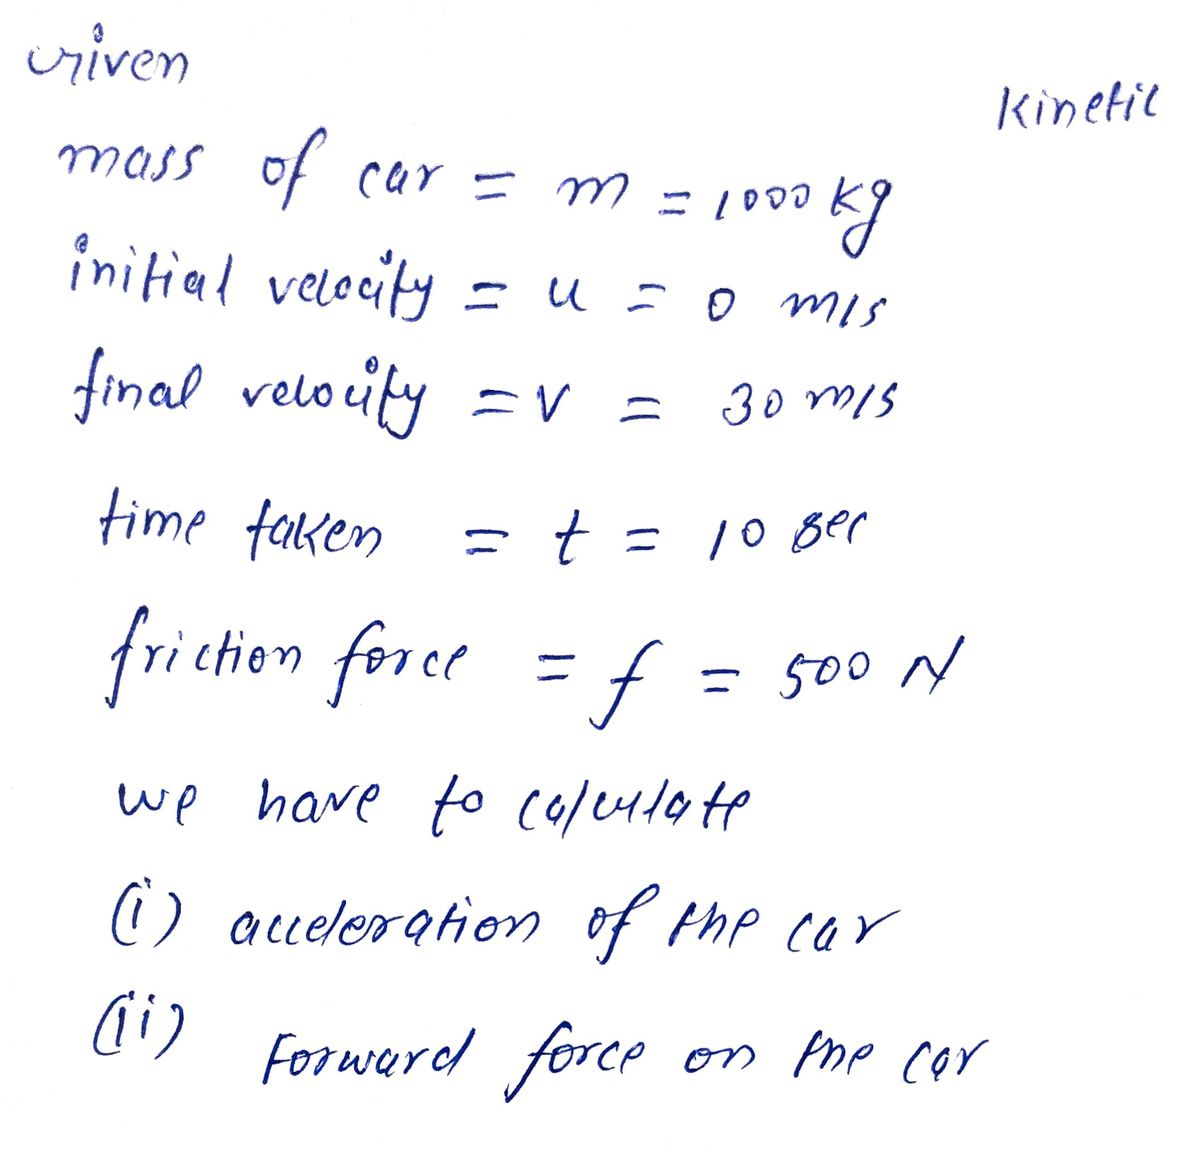 Given
Kinetic
mass of car = m = 1000 kg
initial velocity = u = 0 m/s
final velocity = v = 30 m/s
time taken = t = 10 sec
friction force = f = 500 N
we have to calculate
(i) acceleration of the car
(ii) Forward force on the car